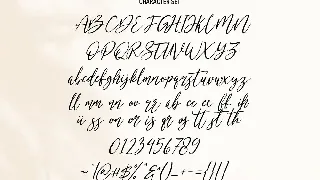 CHARACTER SET
ABCDEFGHIJKLMN
OPQRSTUVWXYZ
abcdefghijklmnopqrstuvwxyz
ll mm nn oo rr ab cc ee ff ft
ii ss on or is qr os tt st th
0123456789
~`!@#$%^&*()_+-={}[]